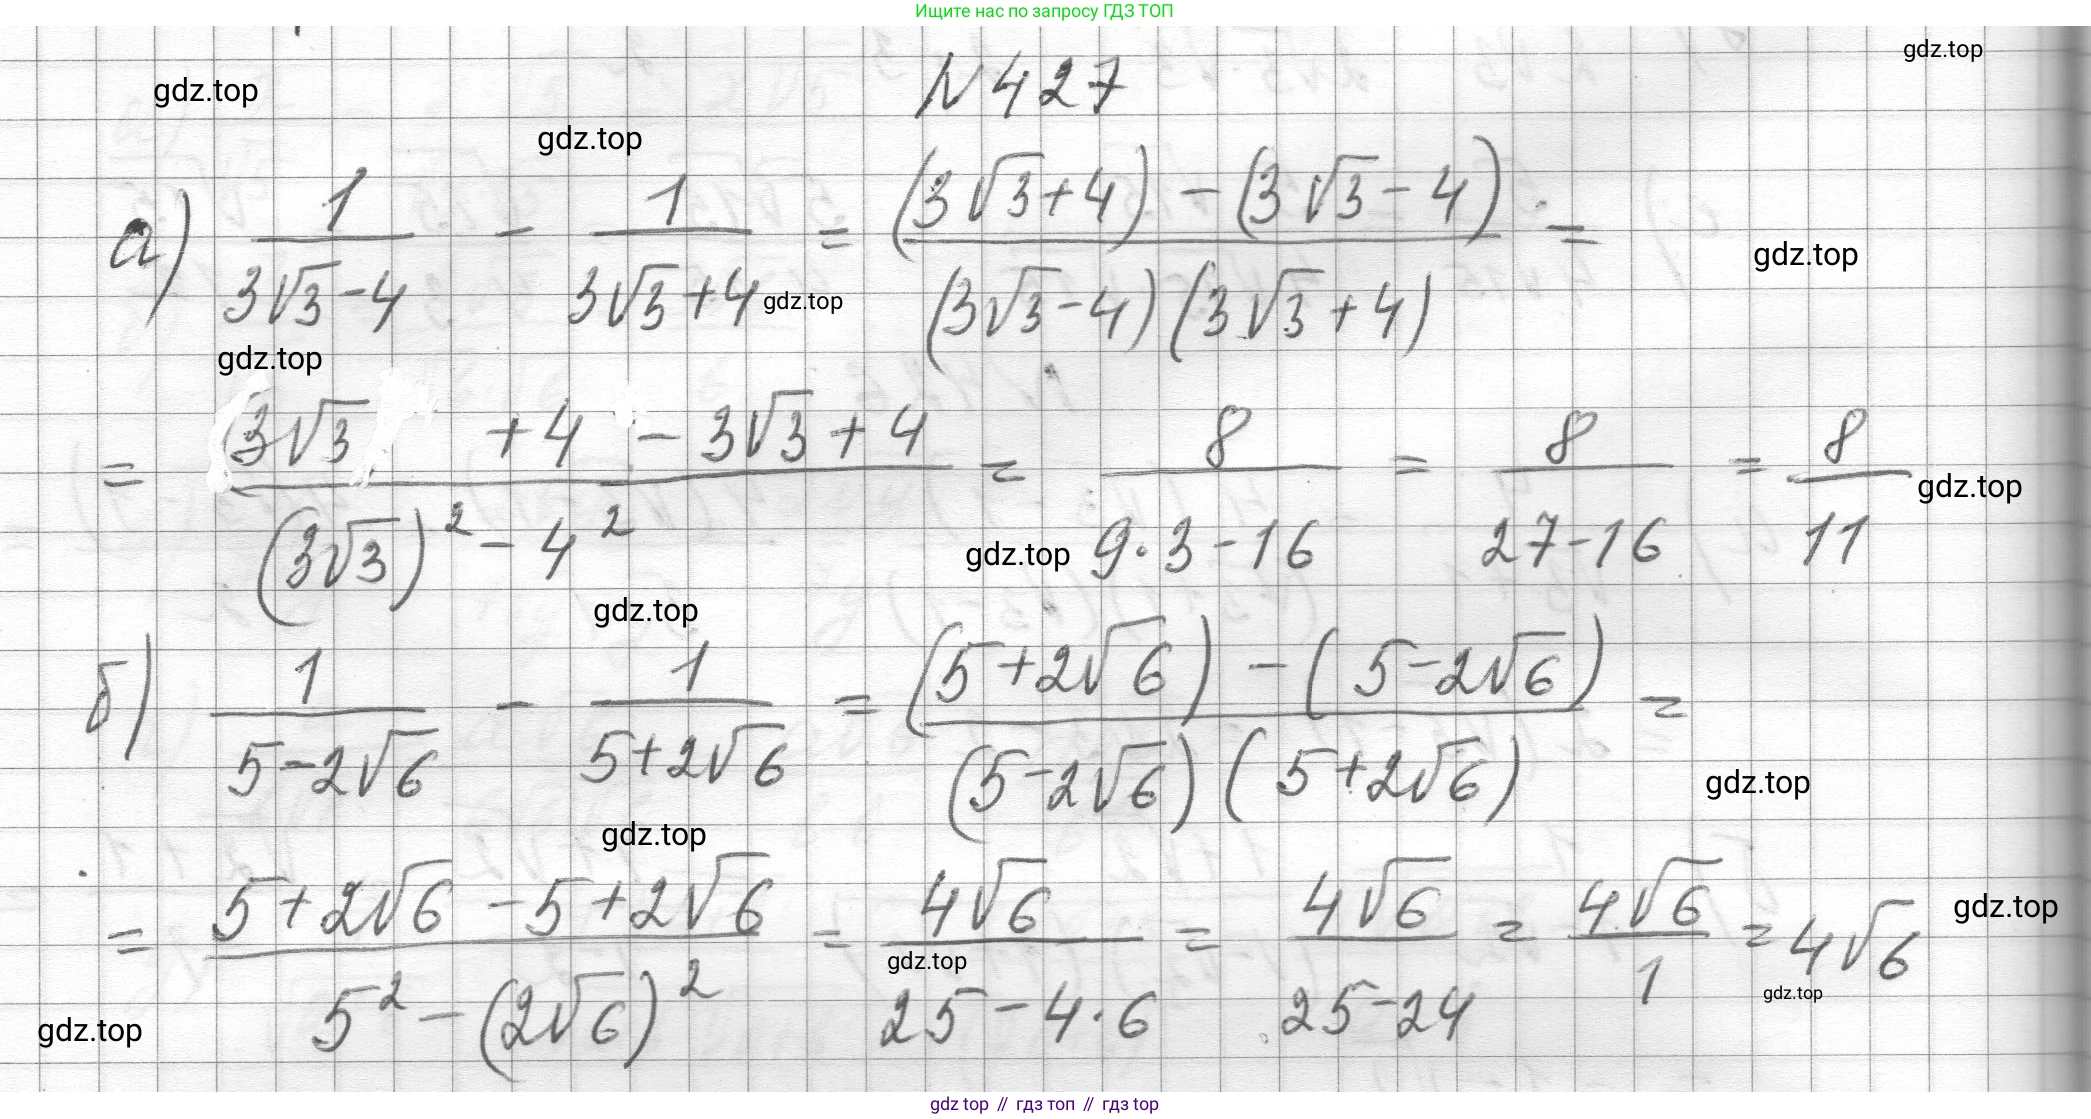 Ищите нас по запросу ГДЗ ТОП
gdz.top
gdz.top
N427
gdz.top
а) 1/(3√3-4) - 1/(3√3+4) = ((3√3+4) - (3√3-4))/((3√3-4)(3√3+4)) =
gdz.top
gdz.top
gdz.top
= (3√3 +4 - 3√3+4)/((3√3)² - 4²) = 8/(9·3-16) = 8/(27-16) = 8/11
gdz.top
gdz.top
gdz.top
б) 1/(5-2√6) - 1/(5+2√6) = ((5+2√6) - (5-2√6))/((5-2√6)(5+2√6)) =
gdz.top
gdz.top
= (5+2√6 -5+2√6)/(5² - (2√6)²) = 4√6/(25-4·6) = 4√6/(25-24) = 4√6/1 = 4√6
gdz.top
gdz.top
gdz.top
gdz.top
gdz top // гдз топ // гдз top